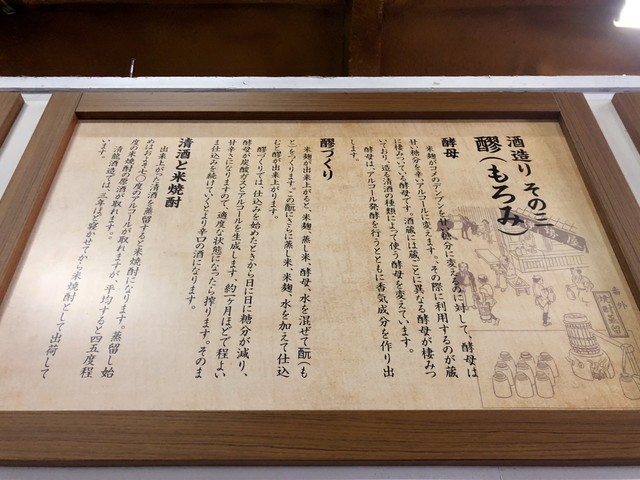 酒造り その三
醪（もろみ）
酵母
米麹がコメのデンプンを甘い糖分に変えるのに対して、酵母は
甘い糖分を辛いアルコールに変えます。その際に利用するのが蔵
に棲みついている酵母です。酒蔵には蔵ごとに異なる酵母が棲みつ
いており、造る清酒の種類によって使う酵母を変えています。
酵母は、アルコール発酵を行うとともに香気成分を作り出
します。
醪づくり
米麹が出来上がると、米麹、蒸し米、酵母、水を混ぜて酛（も
と）をつくります。この酛にさらに蒸し米、米麹、水を加えて仕込
むと醪が出来上がります。
醪づくりでは、仕込みを始めたときから日に日に糖分が減り、
酵母が炭酸ガスとアルコールを生成します。約一ヶ月ほどで程よい
甘辛さになりますので、適度な状態になったら搾ります。そのま
ま仕込みを続けていくとより辛口の酒になります。
清酒と米焼酎
出来上がった清酒を蒸留すると米焼酎になります。蒸留し始
めはおよそ七〇度のアルコールが取れますが、平均すると四五度程
度の米焼酎の原酒が取れます。
清龍酒造では、三年ほど寝かせてから米焼酎として出荷して
います。
番外
焼酎蒸留